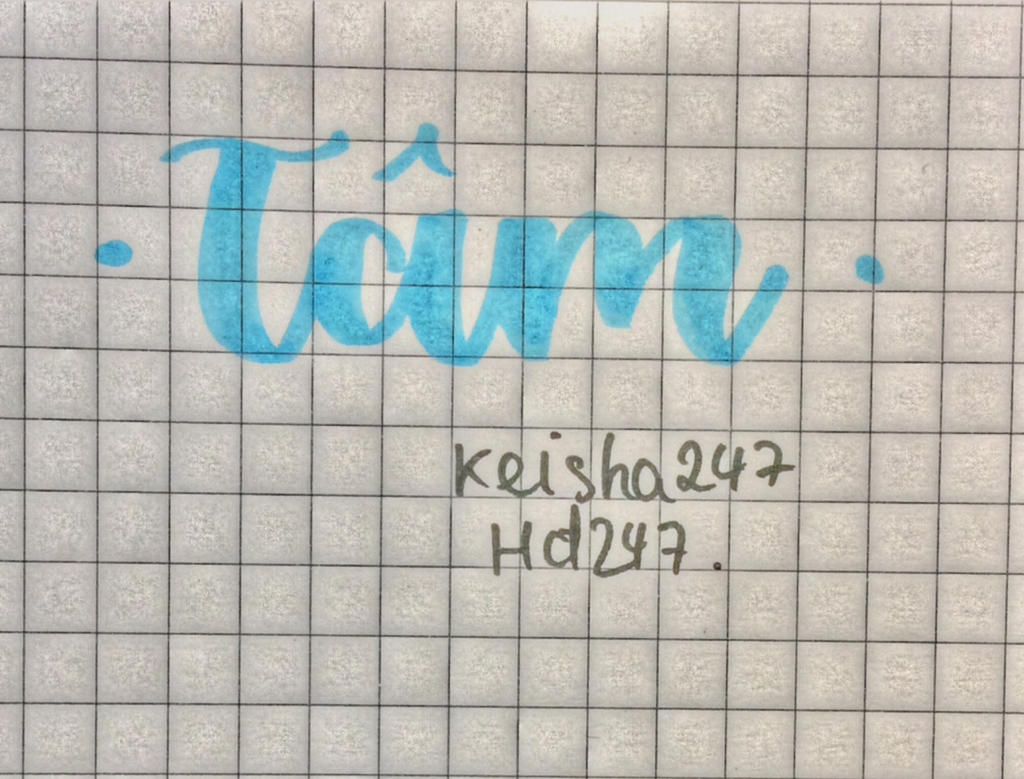 · Tâm ·
Keisha247
Hd247.